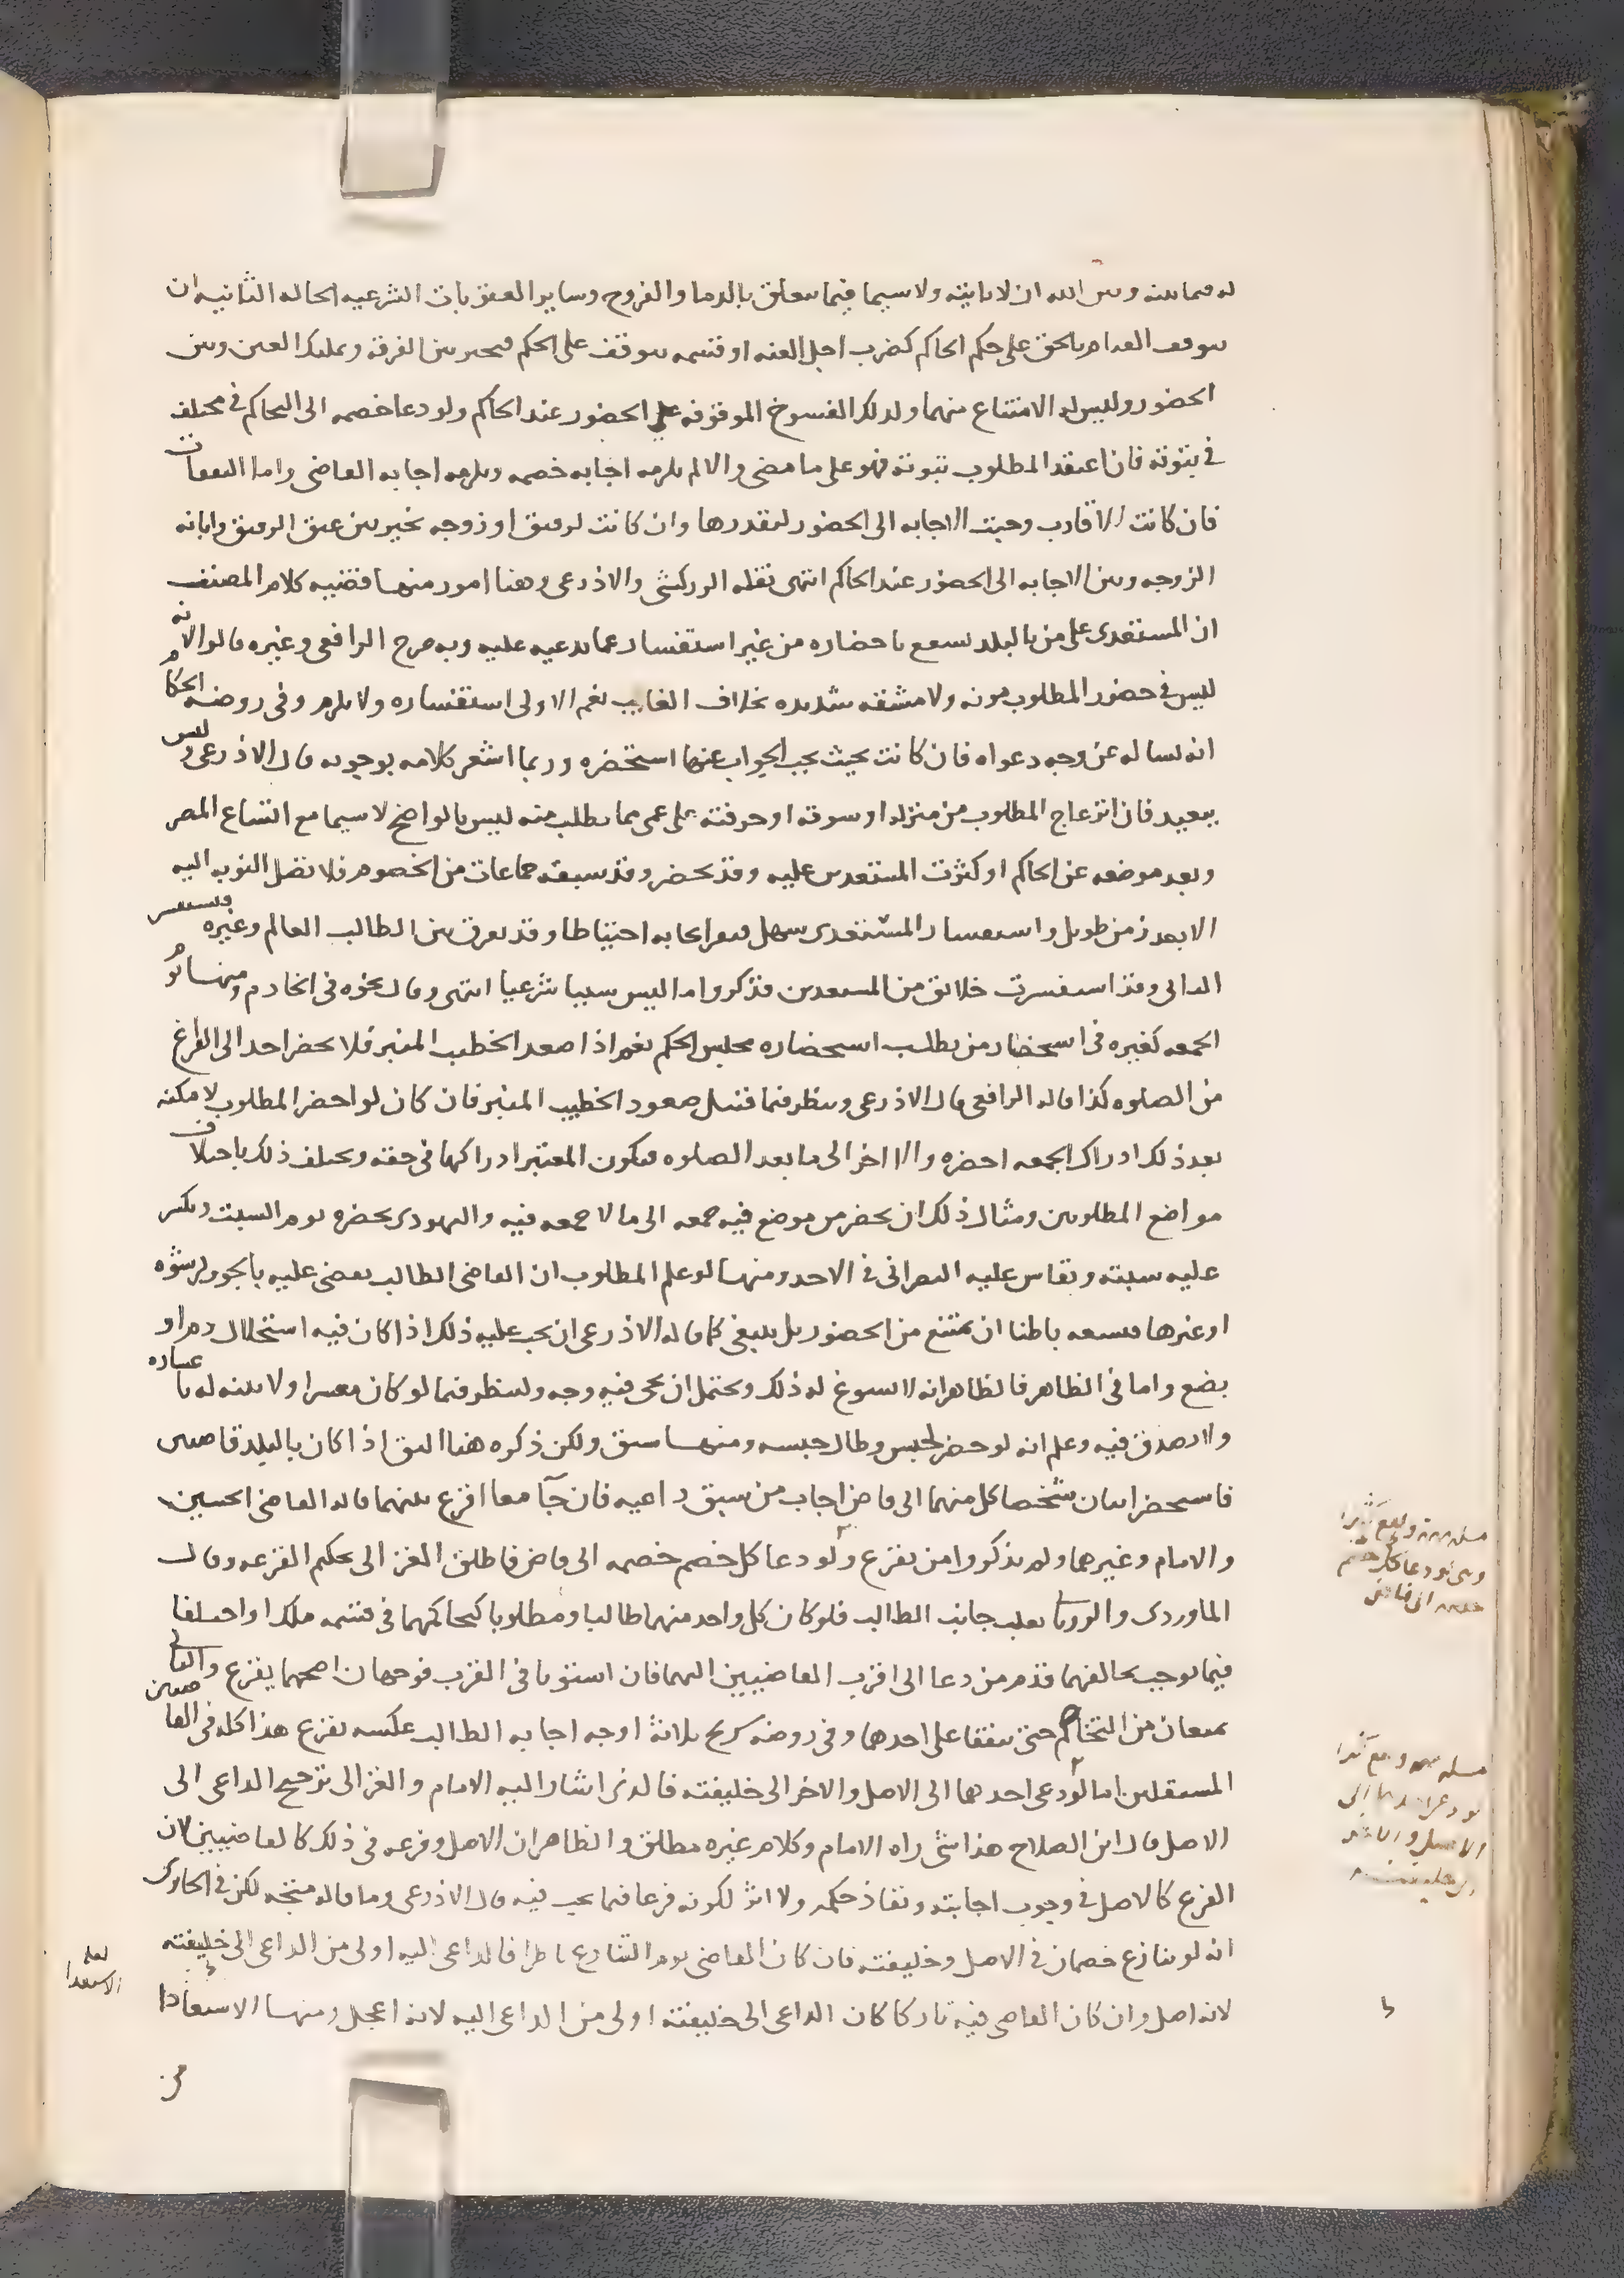 له فيما بينه وبين الله ان لا ياتيه ولا سيما فيما يتعلق بالدما والفروج وساير العقوبات الشرعيه الحاله الثانيه ان
يتوقف القيام بالحق على حكم الحاكم كضرب اجل العنه او قسمه يتوقف على الحكم فيخير بين الفرقه وتمليك العين وبين
الحضور وليس له الامتناع منهما وكذلك الفسوخ الموقوفه على الحضور عند الحاكم ولو دعا خصمه الى التحاكم في مختلف
في ثبوته فان اعتقد المطلوب ثبوته فهو على ما مضى والا لم يلزمه اجابه خصمه ويلزمه اجابه القاضى واما النفقات
فان كانت للاقارب وجبت الاجابه الى الحضور لتقديرها وان كانت لرقيق او زوجه تخير بين عتق الرقيق وابانه
الزوجه وبين الاجابه الى الحضور عند الحاكم انتهى نقله الزركشى والاذرعى وهنا امور منها قضيه كلام المصنف
ان المستعدى على من بالبلد يسمع باحضاره من غير استفسار عما يدعيه عليه وبه صرح الرافعى وغيره قالوا لانه
ليس في حضور المطلوب مونه ولا مشقه شديده بخلاف الغايب نعم الاولى استفساره ولا يلزم وفى روضه الحكام
انه يساله عن وجه دعواه فان كانت بحيث يجب الجواب عنها استحضره وربما اشعر كلامه بوجوبه قال الاذرعى وليس
ببعيد فان انزعاج المطلوب من منزله او سوقه او حرفته على عمى مما يطلب منه ليس بالواضح لا سيما مع اتساع المصر
وبعد موضعه عن الحاكم او كثرت المستعدين عليه وقد يحضر وقد سبقه جماعات من الخصوم فلا تصل النوبه اليه
الا بعد زمن طويل واستفسار المستعدى سهل احتياطا وقد يفرق بين الطالب العالم وغيره فيستفسر
الثانى وقد استفسرت خلائق من المستعدين فذكروا ما ليس سببا شرعيا انتهى وقال نحوه في الخادم ومنها يوم
الجمعه كغيره في استحضار من يطلب استحضاره مجلس الحكم نعم اذا صعد الخطيب المنبر فلا يحضر احد الى الفراغ
من الصلوه كذا قاله الرافعى قال الاذرعى وينظر فيما قبيل صعود الخطيب المنبر فان كان لو احضر المطلوب لامكنه
بعد ذلك ادراك الجمعه احضره والا اخر الى ما بعد الصلوه فيكون المعتبر ادراكها في حقه ويختلف ذلك باختلاف
مواضع المطلوبين ومثال ذلك ان يحضر من موضع فيه جمعه الى ما لا جمعه فيه واليهودى يحضره يوم السبت ويكسر
عليه سبته ويقاس عليه النصرانى في الاحد ومنها لو علم المطلوب ان القاضى الطالب يقضى عليه بالجور لرشوه
او غيرها فيسعه باطنا ان يمتنع من الحضور بل ينبغى كما قاله الاذرعى ان يجب عليه ذلك اذا كان فيه استحلال دم او
بضع واما في الظاهر فالظاهر انه لا يسوغ له ذلك ويحتمل ان يجى فيه وجه ولينظر فيما لو كان معسرا ولا بينه له باعساره
ولا يصدق فيه وعلم انه لو حضر لحبس وطال حبسه ومنها سبق ولكن ذكره هنا اليق اذا كان بالبلد قاضيين
فاستحضر اثنان شخصا كل منهما الى قاض اجاب من سبق داعيه فان جآ معا اقرع بينهما قاله القاضى الحسين
والامام وغيرهما ولم يذكروا من يقرع ولو دعا كل خصم خصمه الى قاض فاطلق الغزالى تحكيم القرعه وقال
الماوردى والرويانى يغلب جانب الطالب فلو كان كل واحد منهما طالبا ومطلوبا كتحاكمهما في قسمه ملك او اختلفا
فيما يوجب تحالفهما قدم من دعا الى اقرب القاضيين اليهما فان استويا في القرب فوجهان اصحهما يقرع والثانى
يمنعان من التخاصم حتى يتفقا على احدهما وفي روضه شريح ثلاثة اوجه اجابه الطالب عكسه يقرع هذا كله في القاضيين
المستقلين اما لو دعى احدهما الى الاصل والاخر الى خليفته فالذى اشار اليه الامام والغزالى ترجيح الداعى الى
الاصل قال ابن الصلاح هذا شى راه الامام وكلام غيره مطلق والظاهر ان الاصل وفرعه في ذلك كالقاضيين لان
الفرع كالاصل في وجوب اجابته ونفاذ حكمه ولا اثر لكونه فرعا فيما يجب فيه قال الاذرعى وما قاله متجه لكن في الحاوى
انه لو تنازع خصمان في الاصل وخليفته فان كان القاضى يوم التنازع ناظرا فالداعى اليه اولى من الداعى الى خليفته
لانه اصل وان كان القاضى فيه تاركا كان الداعى الى خليفته اولى من الداعى اليه لانه اعجل ومنها الاستعادا
من
مسله
ولو دعا كل خصم
خصمه الى قاض
مسله
لو دعى احدهما الى
الاصل والاخر
الى خليفته
لعله
الاستعدا